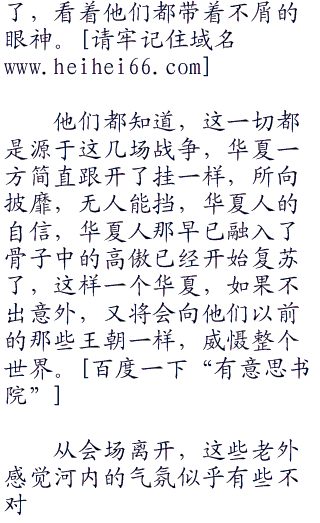 了，看着他们都带着不屑的
眼神。[请牢记住域名
www.heihei66.com]
他们都知道，这一切都
是源于这几场战争，华夏一
方简直跟开了挂一样，所向
披靡，无人能挡，华夏人的
自信，华夏人那早已融入了
骨子中的高傲已经开始复苏
了，这样一个华夏，如果不
出意外，又将会向他们以前
的那些王朝一样，威慑整个
世界。[百度一下“有意思书
院”]
从会场离开，这些老外
感觉河内的气氛似乎有些不
对